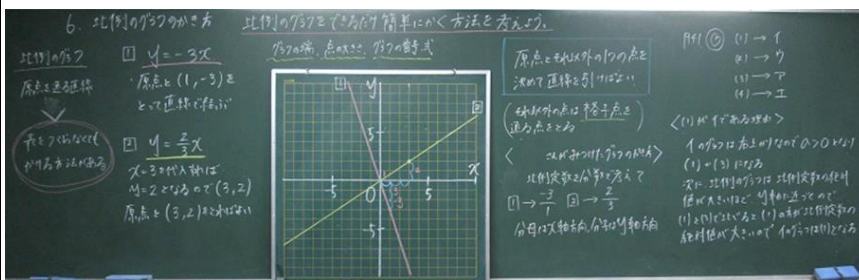 6. 比例のグラフのかき方
比例のグラフをできるだけ簡単にかく方法を考えよう。
比例のグラフ
原点を通る直線
表をつくらなくても
かける方法がある
1 y=-3x
・原点と(1,-3)を
とって直線で結ぶ
2 y=2/3x
x=3を代入すれば
y=2となるので(3,2)
原点と(3,2)をとればよい
グラフの端、点の大きさ、グラフの番号、式
1
y
2
5
x
-5
0
5
-5
原点とそれ以外の1つの点を
決めて直線を引けばよい
それ以外の点は格子点を
通る点をとる
さんがみつけたグラフのかき方
比例定数を分数と考えて
1→-3/1 2→2/3
分母はx軸方向、分子はy軸方向
P141 ③ (1)→イ
(2)→ウ
(3)→ア
(4)→エ
<(1)がイである理由>
イのグラフは右上がりなのでa>0となり
(1)か(3)になる
次に比例のグラフは比例定数の絶対
値が大きいほどy軸に近づくので
(1)と(3)でくらべると(1)の方が比例定数の
絶対値が大きいのでイのグラフは(1)となる